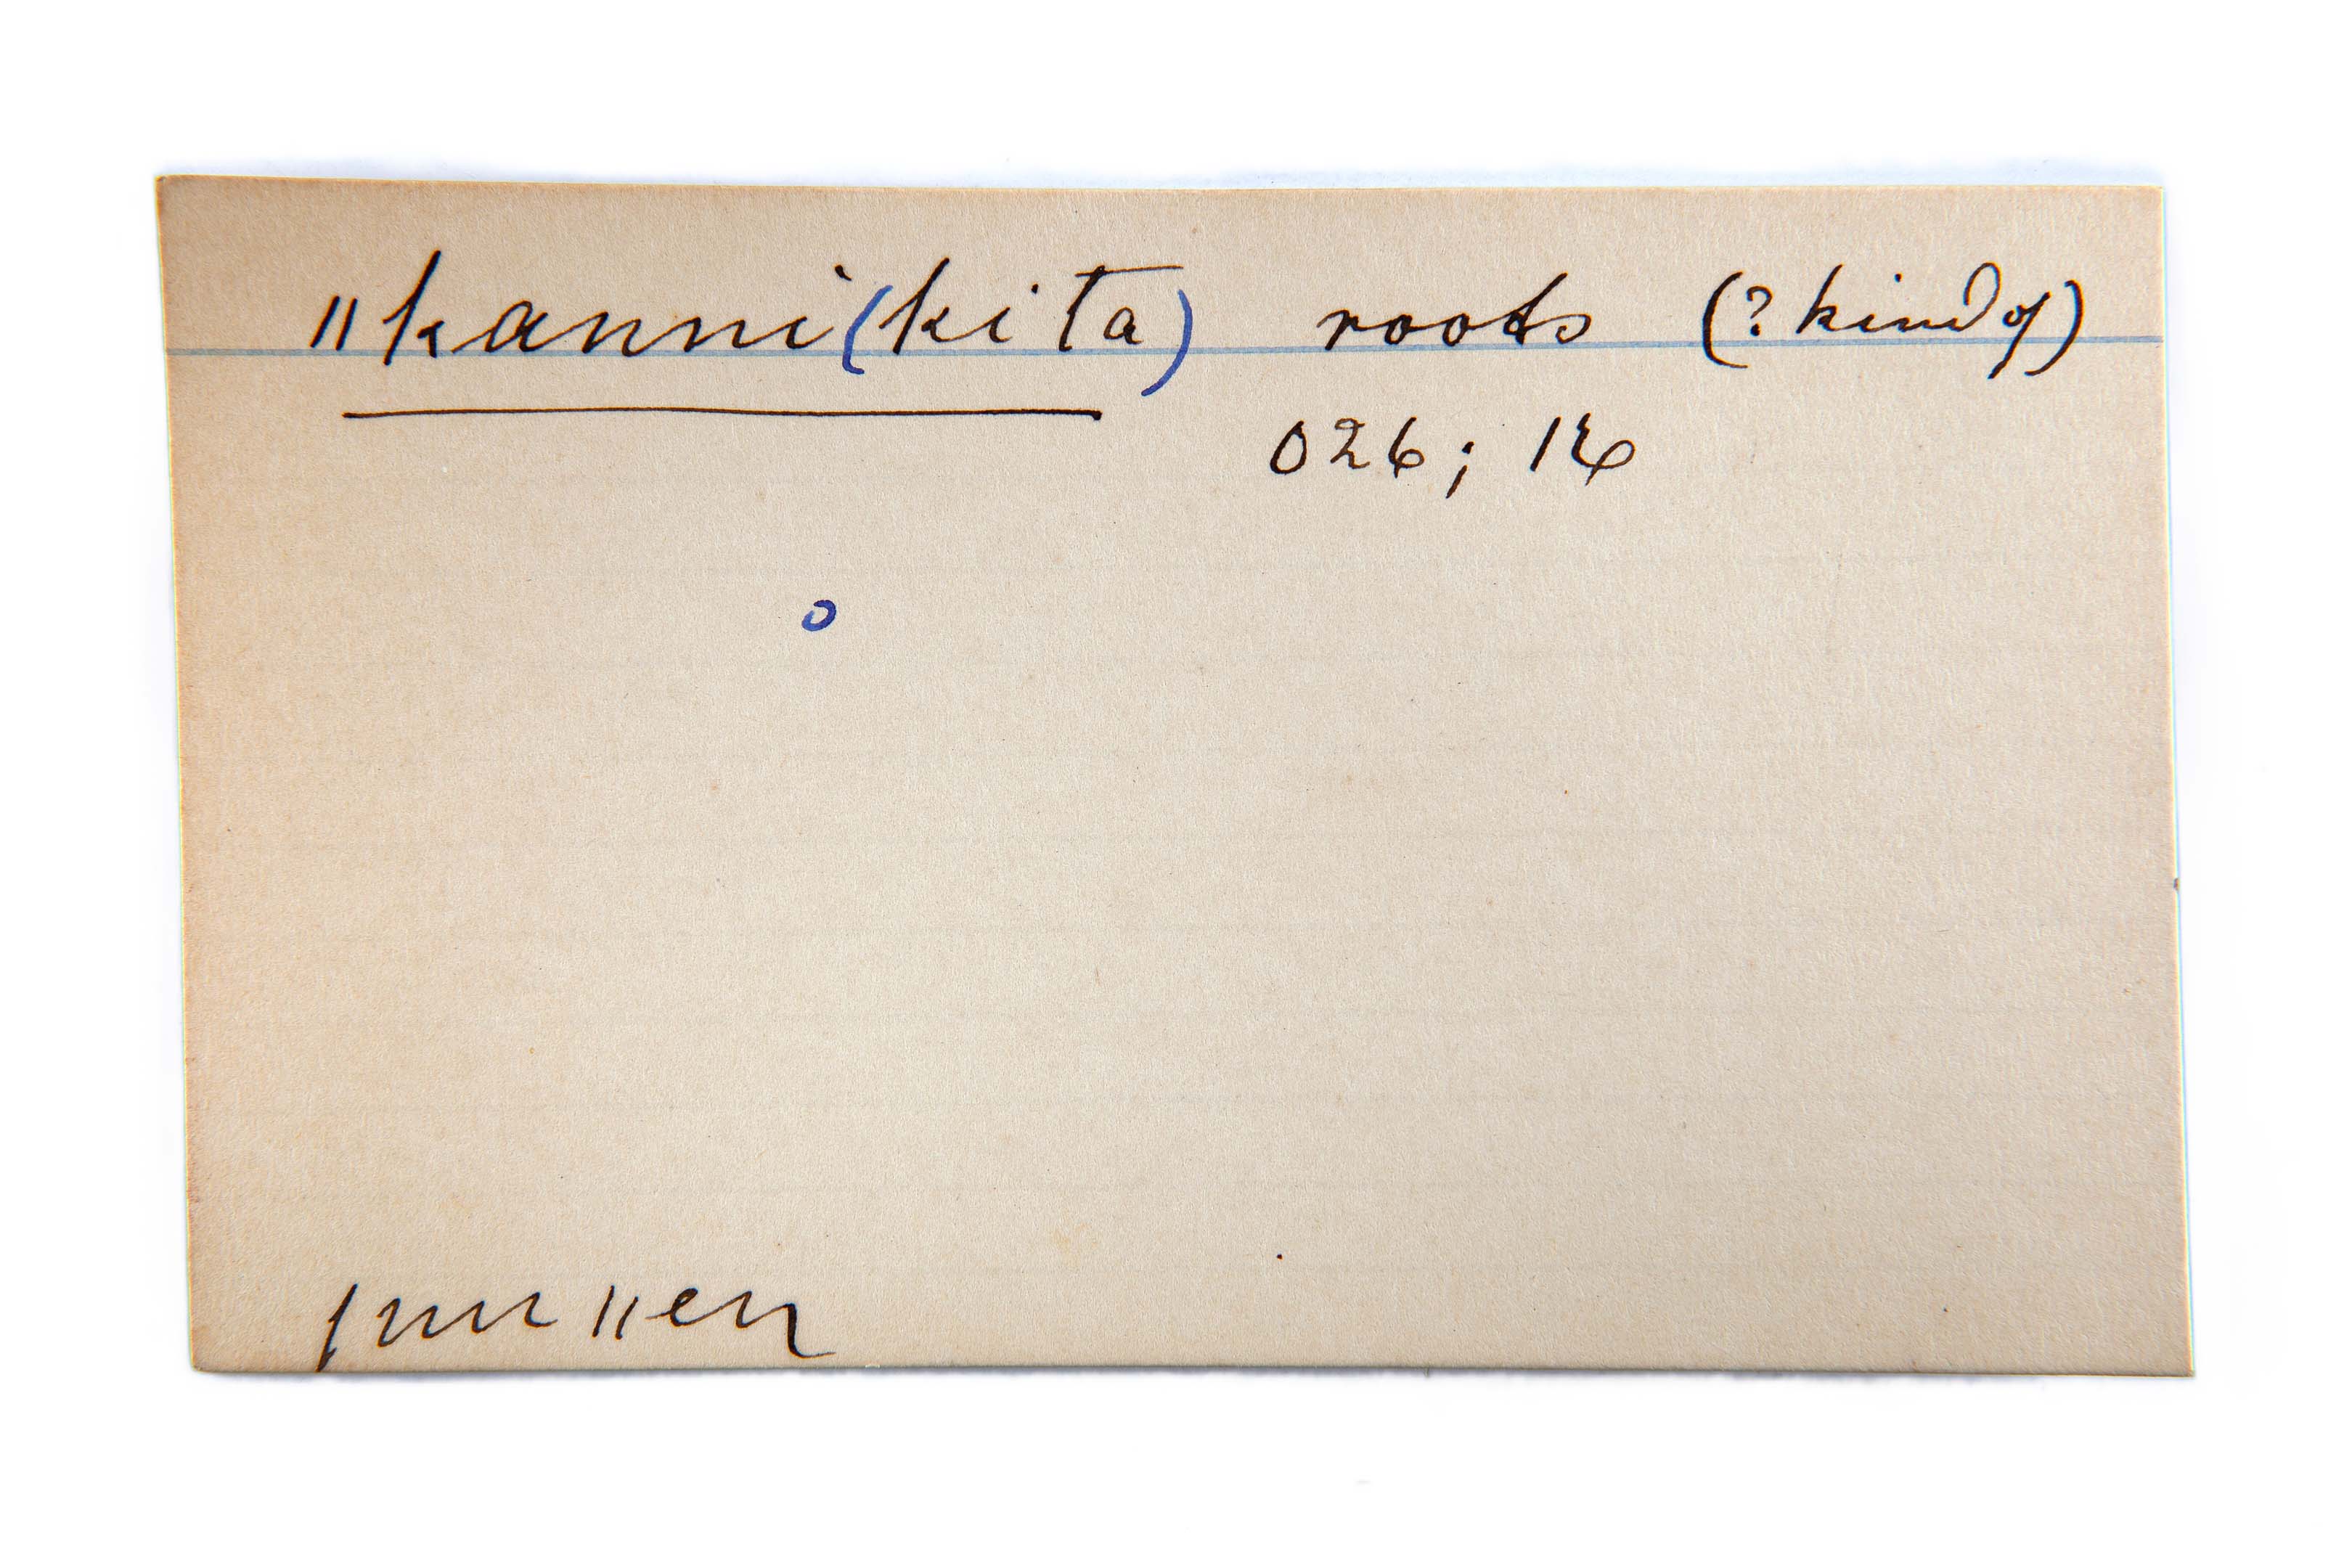 "kanni(kita) roots (? kind of)
026; 16
o